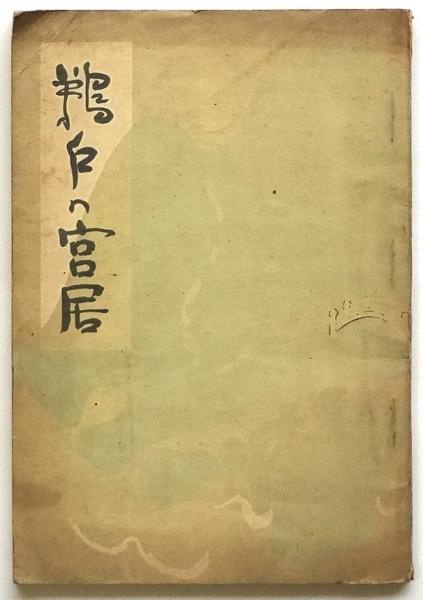 鵜戸の宮居